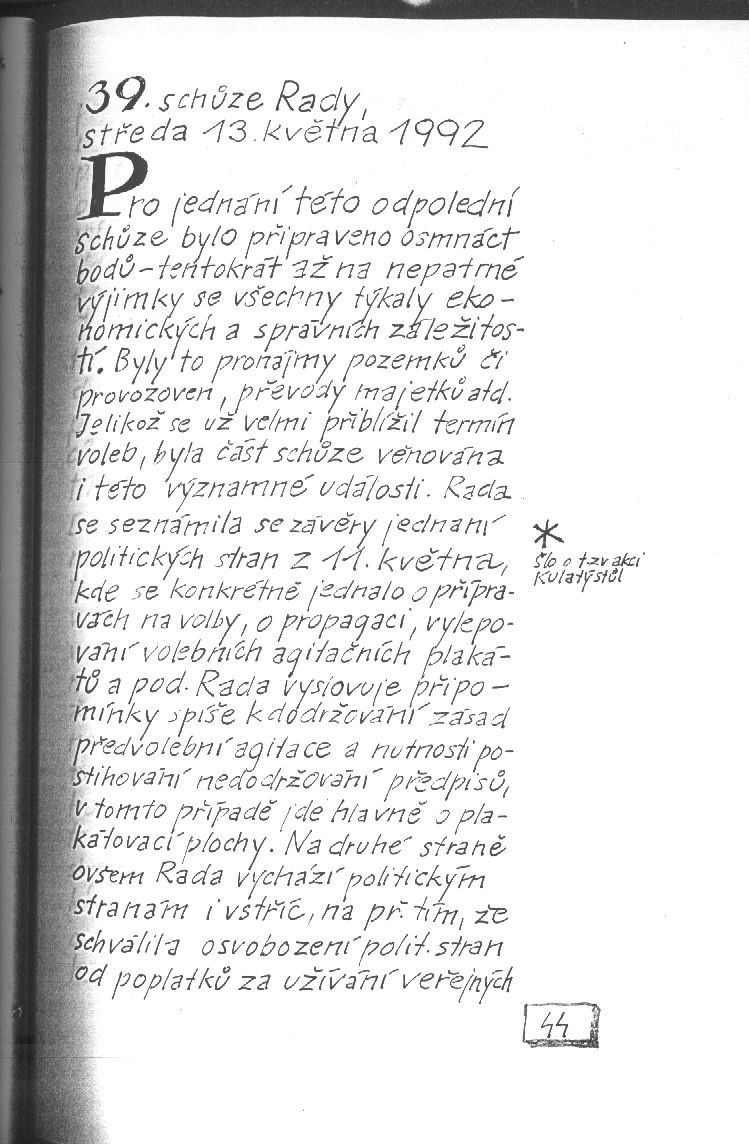 39. schůze Rady,
středa 13. května 1992
Pro jednání této odpolední
schůze bylo připraveno osmnáct
bodů – tentokrát až na nepatrné
výjimky se všechny týkaly eko-
nomických a správních záležitos-
tí. Byly to pronájmy pozemků či
provozoven, převody majetků atd.
Jelikož se už velmi přiblížil termín
voleb, byla část schůze věnována
i této významné události. Rada
se seznámila se závěry jednání
politických stran z 11. května,
*
Šlo o tzv akci
Kulatý stůl
kde se konkrétně jednalo o přípra-
vách na volby, o propagaci, vylepo-
vání volebních agitačních plaká-
tů a pod. Rada vyslovuje připo-
mínky spíše k dodržování zásad
předvolební agitace a nutnosti po-
stihování nedodržování předpisů,
v tomto případě jde hlavně o pla-
kátovací plochy. Na druhé straně
ovšem Rada vychází politickým
stranám i vstříc, na př. tím, že
schválila osvobození polit. stran
od poplatků za užívání veřejných
44